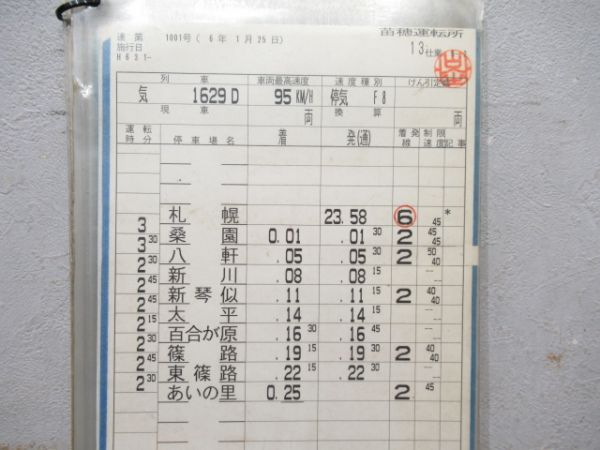 達業 1001号(6年1月25日)
苗穂運転所
施行日
H631-
13仕業
列車
車両最高速度
速度種別
けん引定数
気 1629D
95KM/H
停気 F8
現車 両
換算 両
運転時分
停車場名
着
発(通)
着発線
制限速度
記事
札幌 23.58 6 45 *
3
桑園 0.01 .01 30 2 45 45
3 30
八軒 .05 .05 30 2 50 40
2 30
新川 .08 .08 15
2 45
新琴似 .11 .11 15 2 40 40
2 45
太平 .14 .14 15
2 15
百合が原 .16 30 .16 45
2 30
篠路 .19 15 .19 30 2 40 40
2 45
東篠路 .22 15 .22 30
2 30
あいの里 0.25 2 45